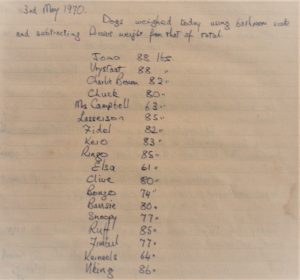 3rd May 1970.
Dogs weighed today using bathroom scale
and subtracting Drews weight from that of total
Jomo 88 lbs
Vrystaat 88 "
Charlie Brown 82 "
Chuck 80 "
Mrs Campbell 63 "
85 "
Fidel 82 "
Kero 83 "
Ringo 85 "
Elsa 61 "
Clive 80 "
Bonzo 74 "
80 "
Snoopy 77 "
Ruff 85 "
77 "
64 "
Viking 86 "